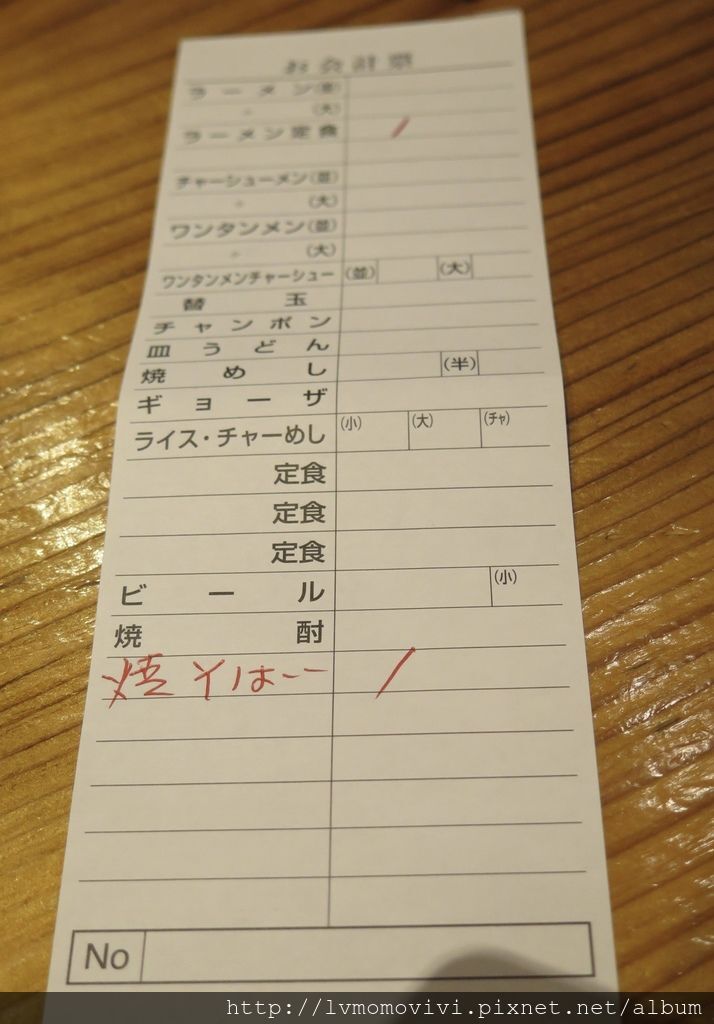 お会計票
ラーメン(並)
〃 (大)
ラーメン定食 /
チャーシューメン(並)
〃 (大)
ワンタンメン(並)
〃 (大)
ワンタンメンチャーシュー (並) (大)
替玉
チャンポン
皿うどん
焼めし (半)
ギョーザ
ライス・チャーめし (小) (大) (チャ)
定食
定食
定食
ビール (小)
焼酎
焼そば /
No
http://lvmomovivi.pixnet.net/album